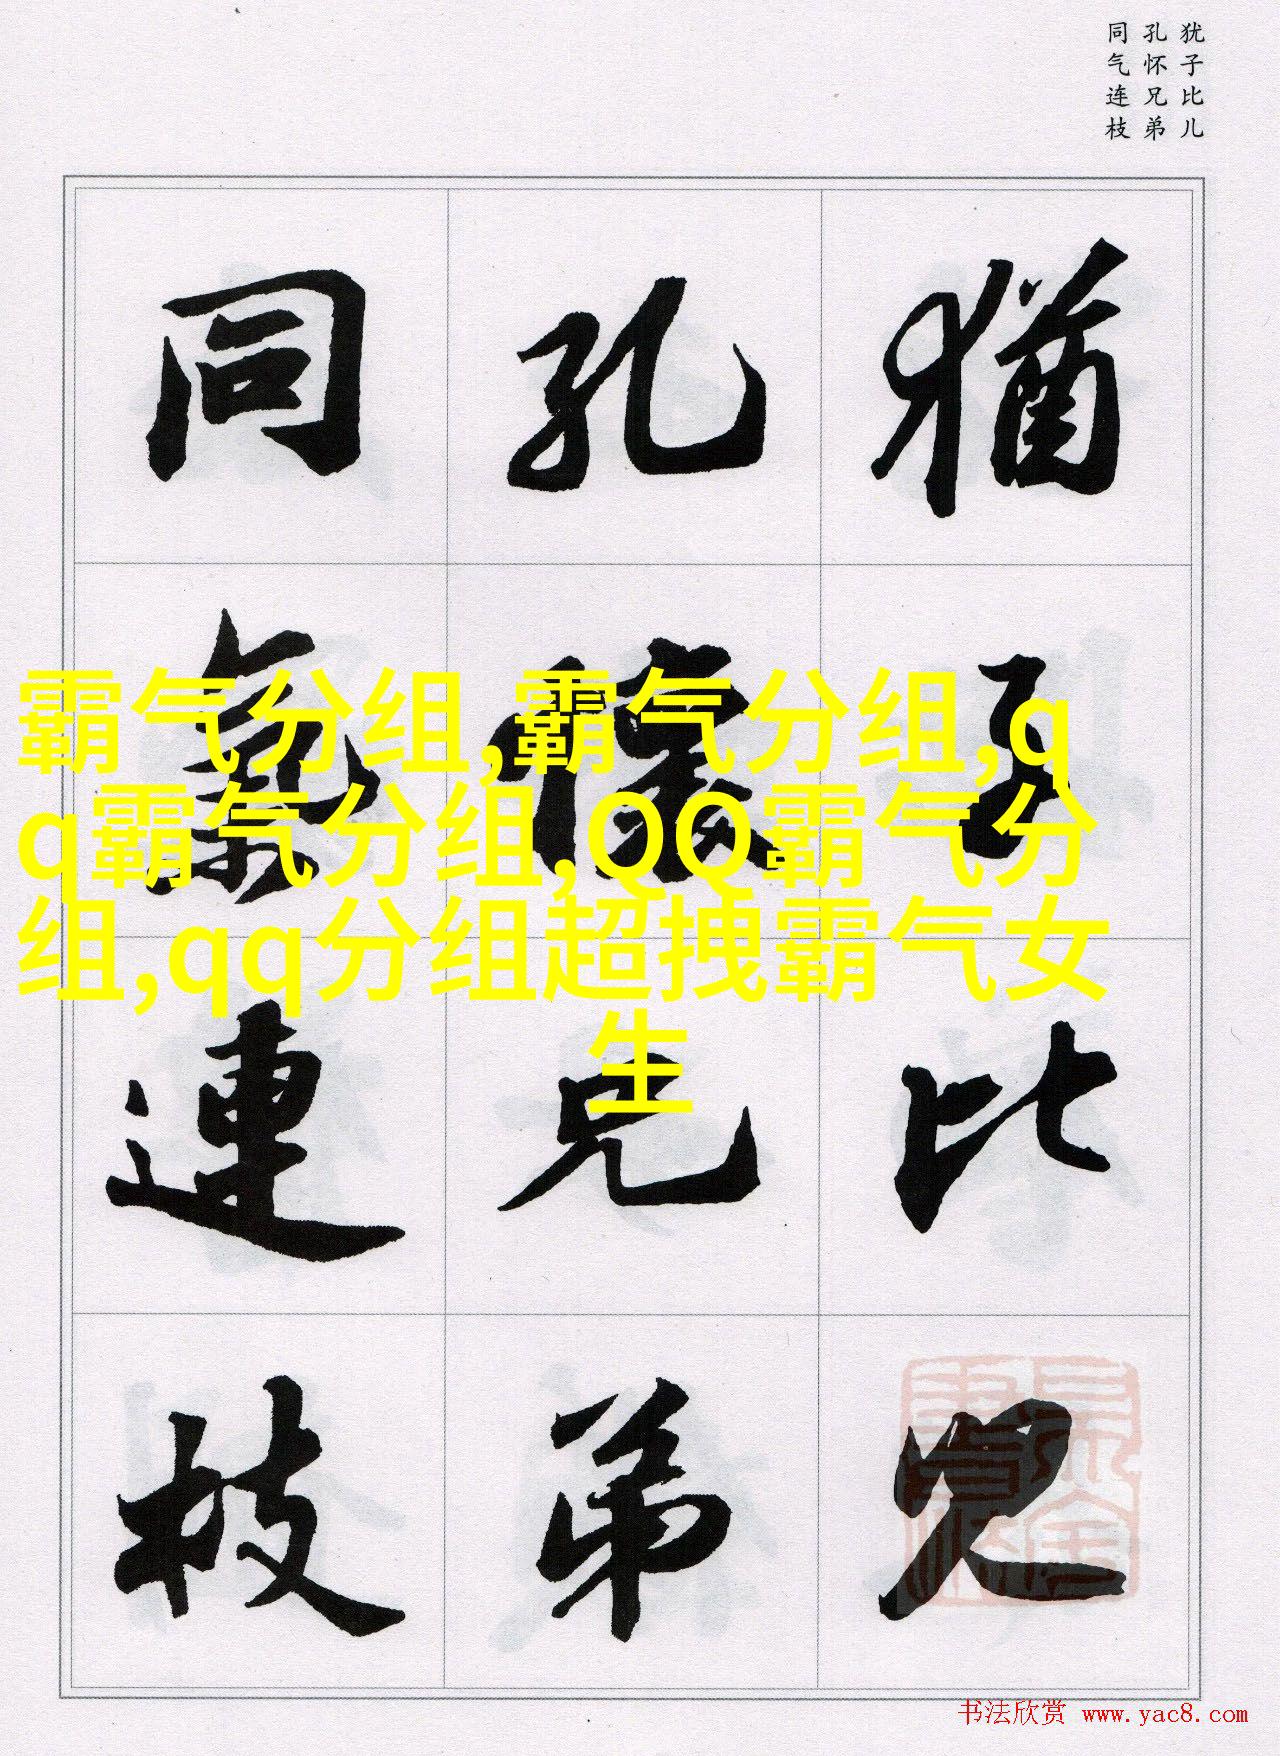 犹子比儿
孔怀兄弟
同气连枝
猶子比兒
孔懷兄弟
同氣連枝
霸气分组,霸气分组,q
q霸气分组,QQ霸气分
组,qq分组超拽霸气女
生
书法欣赏 www.yac8.com